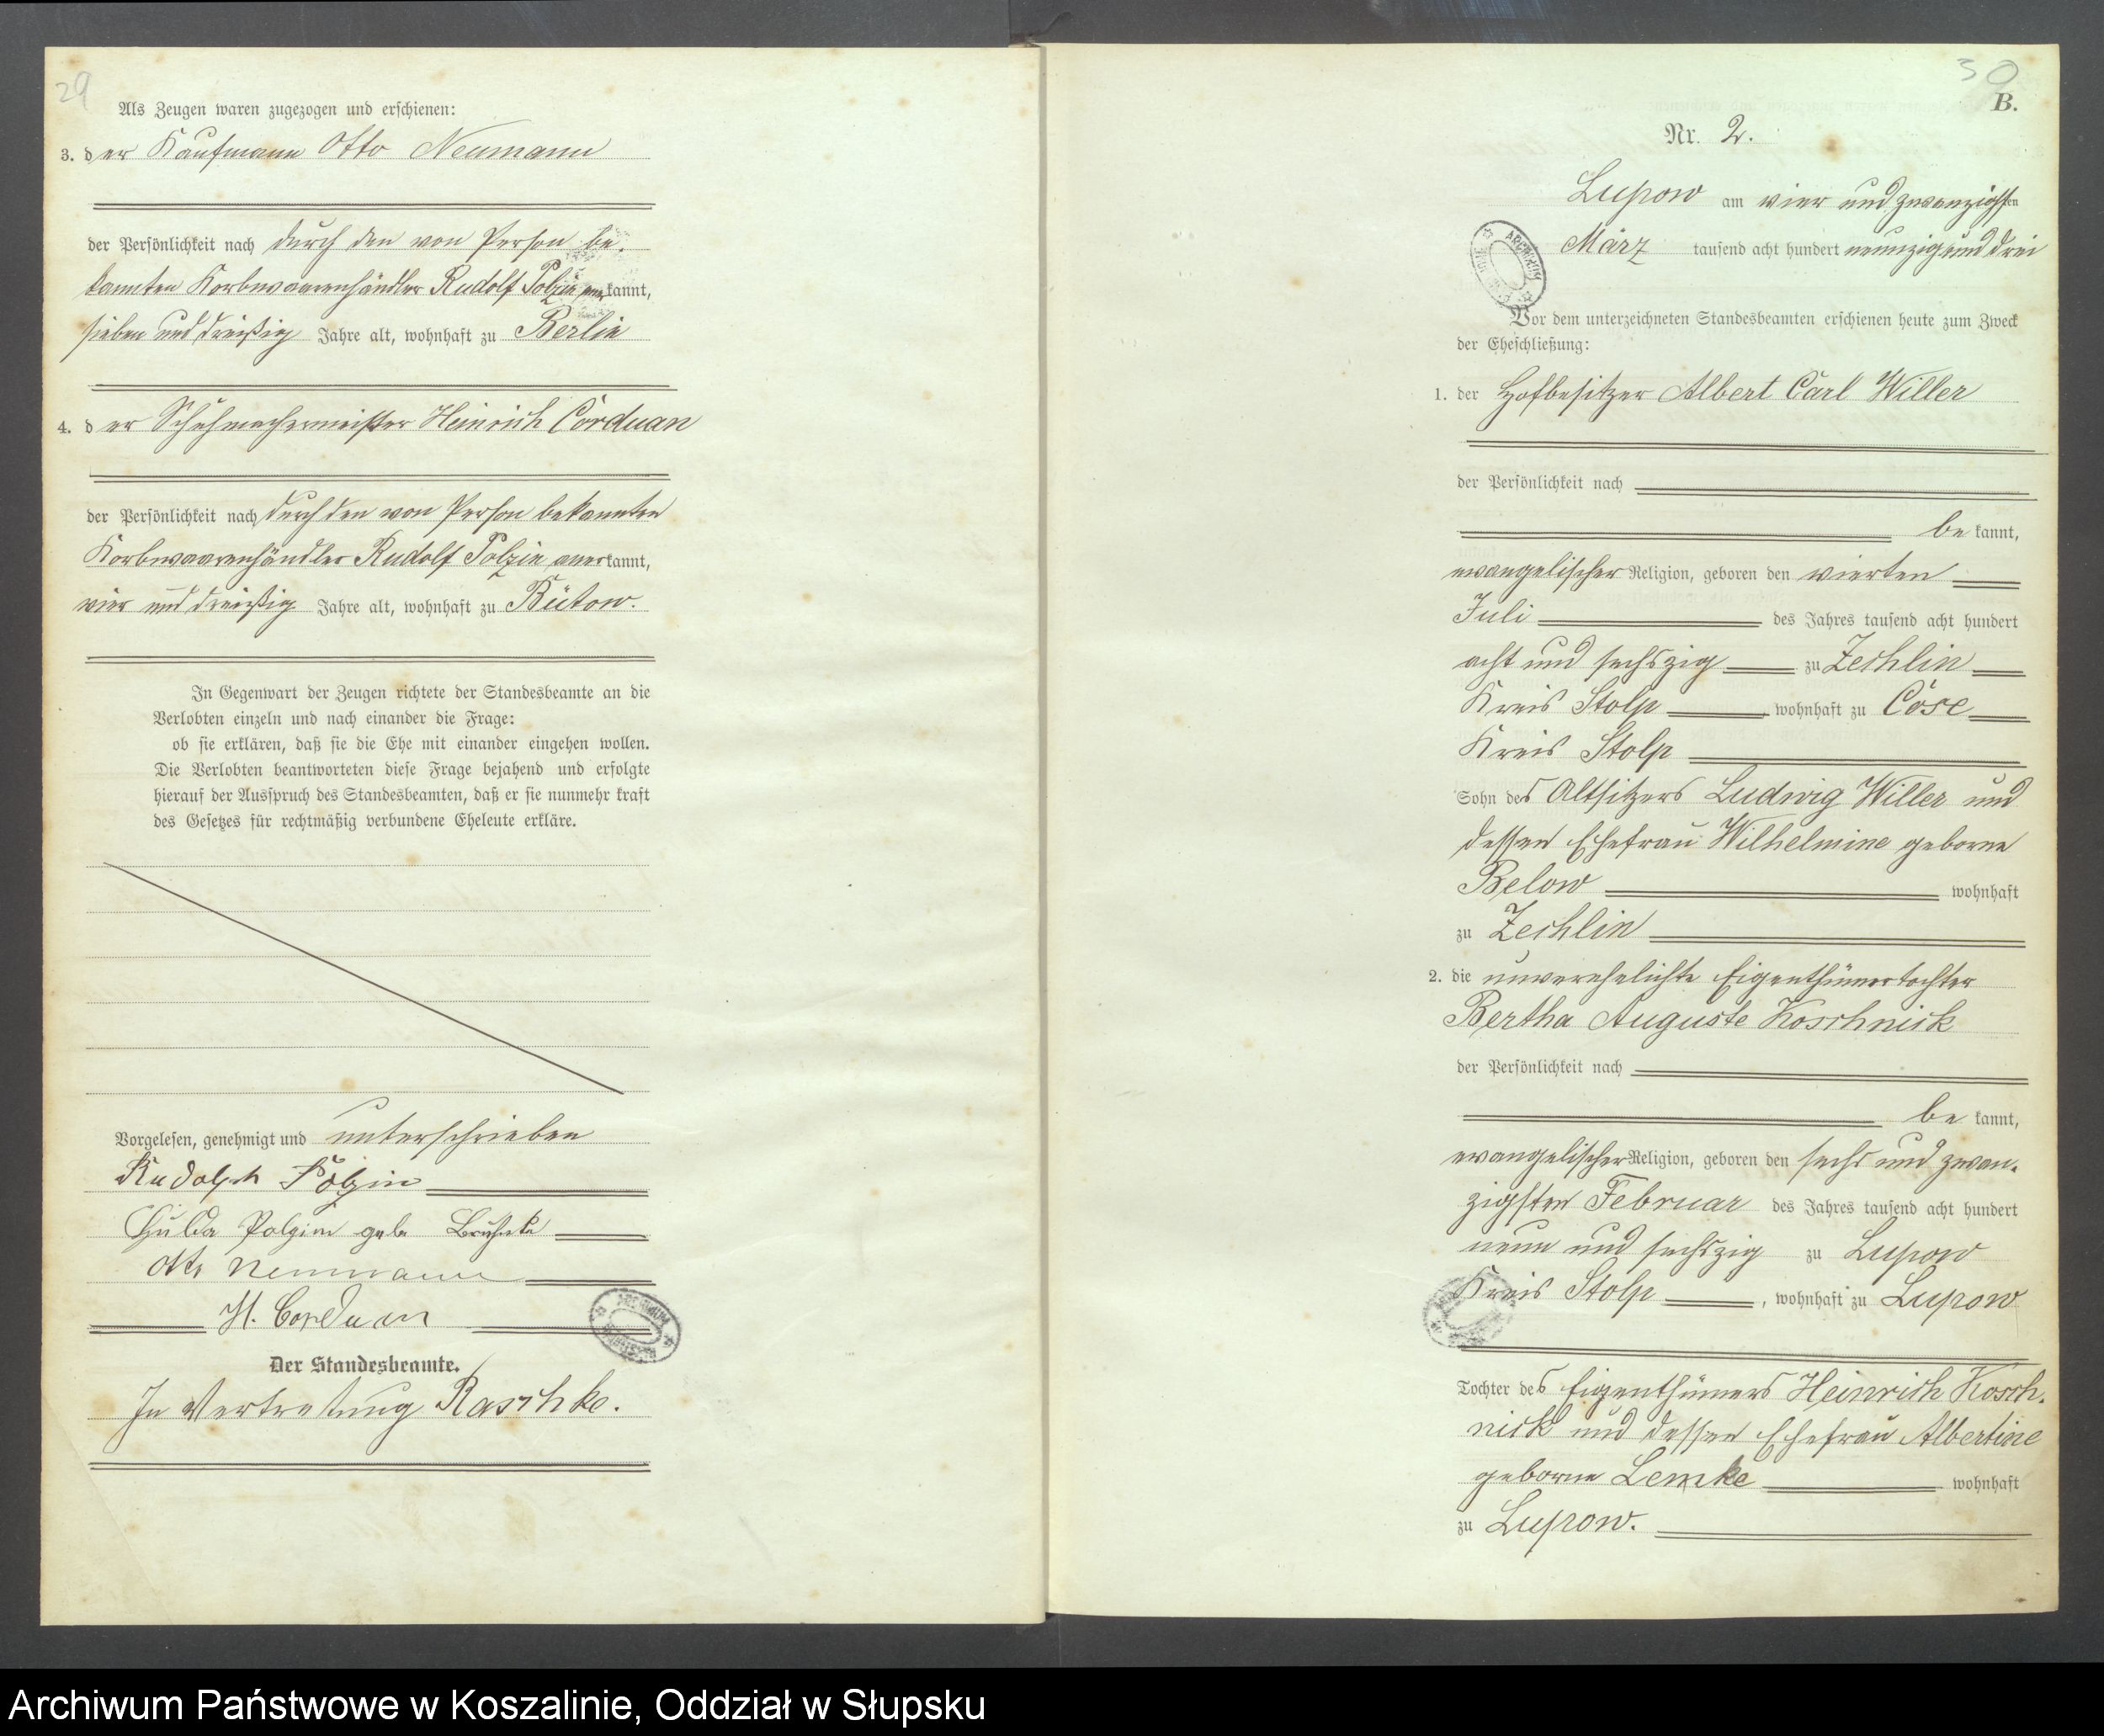 29
Als Zeugen waren zugezogen und erschienen:
3. der Kaufmann Otto Neumann
der Persönlichkeit nach durch den von Person be-
kannten Korbwaarenhändler Rudolf Polzin anerkannt,
sieben und dreißig Jahre alt, wohnhaft zu Berlin
4. der Schuhmachermeister Heinrich Corduan
der Persönlichkeit nach durch den von Person bekannten
Korbwaarenhändler Rudolf Polzin anerkannt,
vier und dreißig Jahre alt, wohnhaft zu Bütow.
In Gegenwart der Zeugen richtete der Standesbeamte an die
Verlobten einzeln und nach einander die Frage:
ob sie erklären, daß sie die Ehe mit einander eingehen wollen.
Die Verlobten beantworteten diese Frage bejahend und erfolgte
hierauf der Ausspruch des Standesbeamten, daß er sie nunmehr kraft
des Gesetzes für rechtmäßig verbundene Eheleute erkläre.
Vorgelesen, genehmigt und unterschrieben
Rudolph Polzin
Hulda Polzin geb.
Otto Neumann
H. Corduan
Der Standesbeamte.
In Vertretung Raschke.
30
B.
Nr. 2.
Lupow am vier und zwanzigsten
März tausend acht hundert neunzig und drei
Vor dem unterzeichneten Standesbeamten erschienen heute zum Zweck
der Eheschließung:
1. der Hofbesitzer Albert Carl Willer
der Persönlichkeit nach
be kannt,
evangelischer Religion, geboren den vierten
Juli des Jahres tausend acht hundert
acht und sechszig zu Zechlin
Kreis Stolp, wohnhaft zu Cose
Kreis Stolp
Sohn des Altsitzers Ludwig Willer und
dessen Ehefrau Wilhelmine geborne
Below wohnhaft
zu Zechlin
2. die unverehelichte Eigenthümertochter
Bertha Auguste Koschnick
der Persönlichkeit nach
be kannt,
evangelischer Religion, geboren den sechs und zwan-
zigsten Februar des Jahres tausend acht hundert
neun und sechszig zu Lupow
Kreis Stolp, wohnhaft zu Lupow
Tochter des Eigenthümers Heinrich Kosch-
nick und dessen Ehefrau Albertine
geborne Lemke wohnhaft
zu Lupow.
Archiwum Państwowe w Koszalinie, Oddział w Słupsku